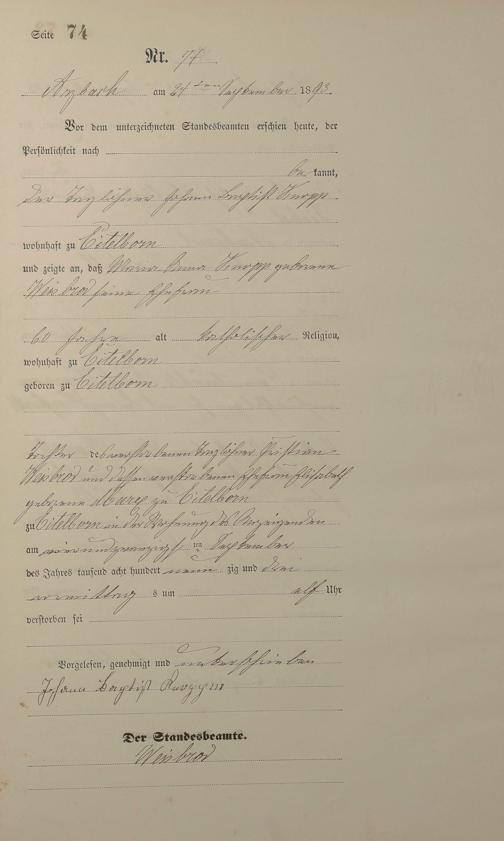 Seite 74
Nr. 74
Arzbach am 24 ten September 1893.
Vor dem unterzeichneten Standesbeamten erschien heute, der
Persönlichkeit nach
be kannt,
der Taglöhner Johann Baptist Knopp
wohnhaft zu Eitelborn
und zeigte an, daß Maria Anna Knopp geborene
Weisbrod seine Ehefrau
60 Jahre alt katholischer Religion,
wohnhaft zu Eitelborn
geboren zu Eitelborn
Tochter des verstorbenen Taglöhner Christian
Weisbrod und dessen verstorbenen Ehefrau Elisabeth
geborene zu Eitelborn
zu Eitelborn in der Wohnung des Anzeigenden
am vierundzwanzigst en September
des Jahres tausend acht hundert neun zig und drei
vormittag s um elf Uhr
verstorben sei
Vorgelesen, genehmigt und unterschrieben
Johann Baptist Knopp III
Der Standesbeamte.
Weisbrod